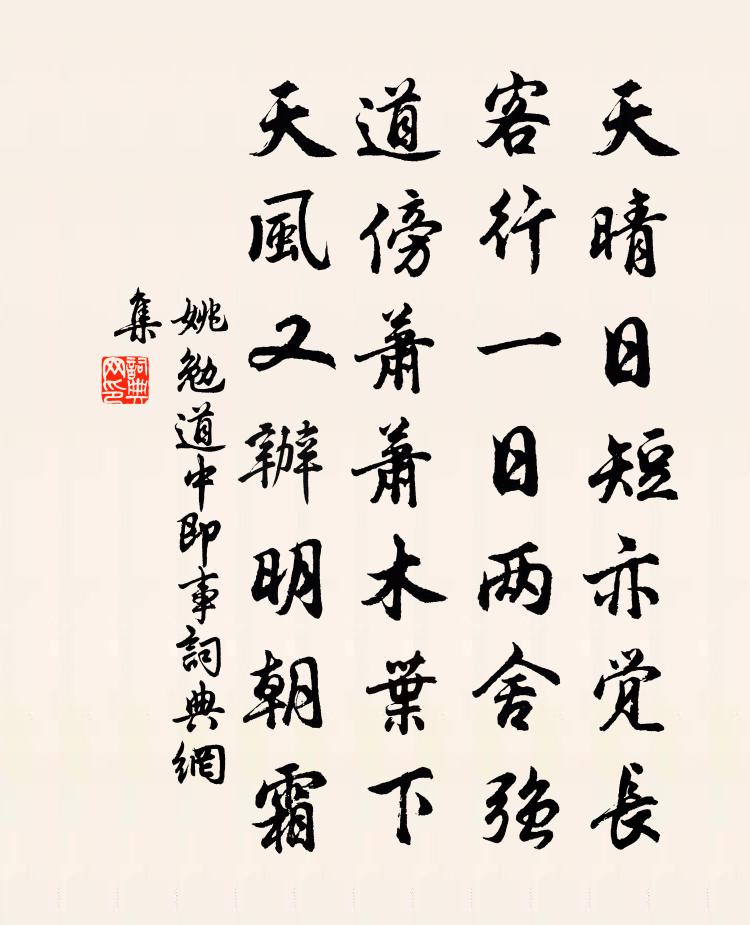 天晴日短亦覚長
客行一日两舍強
道傍蕭蕭木葉下
天風又辦明朝霜
姚勉道中即事詞典網
集
詞典
网印